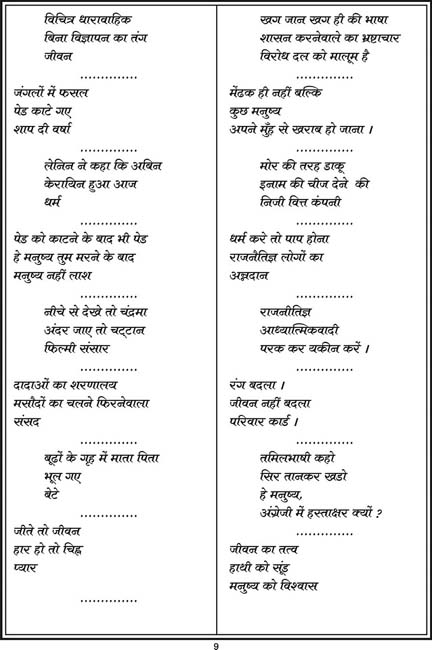 विचित्र धारावाहिक
बिना विज्ञापन का तंग
जीवन
..............
जंगलों में फसल
पेड काटे गए
शाप दी वर्षा
..............
लेनिन ने कहा कि अबिन
केरायिन हुआ आज
धर्म
..............
पेड को काटने के बाद भी पेड
हे मनुष्य तुम मरने के बाद
मनुष्य नहीं लाश
..............
नीचे से देखे तो चंद्रमा
अंदर जाए तो चट्टान
फिल्मी संसार
..............
दादाओं का शरणालय
मसौदों का चलने फिरनेवाला
संसद
..............
बूढों के गृह में माता पिता
भूल गए
बेटे
..............
जीते तो जीवन
हार हो तो चिह्न
प्यार
..............
खग जान खग ही की भाषा
शासन करनेवाले का भ्रष्टाचार
विरोध दल को मालूम है
..............
मेंढक ही नहीं बल्कि
कुछ मनुष्य
अपने मुँह से खराब हो जाना ।
..............
मोर की तरह डाकू
इनाम की चीज देने की
निजी वित्त कंपनी
..............
धर्म करे तो पाप होना
राजनैतिज्ञ लोगों का
अन्नदान
..............
राजनीतिज्ञ
आध्यात्मिकवादी
परक कर यकीन करें ।
..............
रंग बदला ।
जीवन नहीं बदला
परिवार कार्ड ।
..............
तमिलभाषी कहो
सिर तानकर खडो
हे मनुष्य,
अंग्रेजी में हस्ताक्षर क्यों ?
..............
जीवन का तत्व
हाथी को सूंड
मनुष्य को विश्वास
9